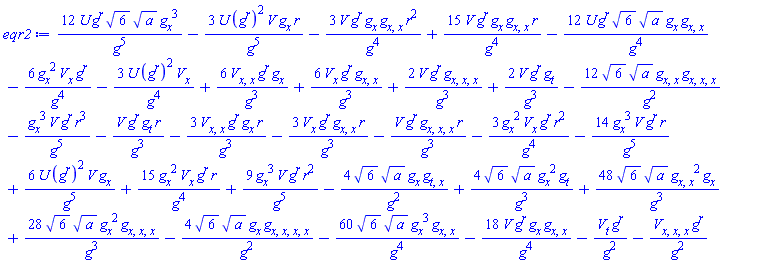 eqr2 := \frac{12 U g^r \sqrt{6} \sqrt{a} g_x^3}{g^5} - \frac{3 U (g^r)^2 V g_x r}{g^5} - \frac{3 V g^r g_x g_{x,x} r^2}{g^4} + \frac{15 V g^r g_x g_{x,x} r}{g^4} - \frac{12 U g^r \sqrt{6} \sqrt{a} g_x g_{x,x}}{g^4}
- \frac{6 g_x^2 V_x g^r}{g^4} - \frac{3 U (g^r)^2 V_x}{g^4} + \frac{6 V_{x,x} g^r g_x}{g^3} + \frac{6 V_x g^r g_{x,x}}{g^3} + \frac{2 V g^r g_{x,x,x}}{g^3} + \frac{2 V g^r g_t}{g^3} - \frac{12 \sqrt{6} \sqrt{a} g_{x,x} g_{x,x,x}}{g^2}
- \frac{g_x^3 V g^r r^3}{g^5} - \frac{V g^r g_t r}{g^3} - \frac{3 V_{x,x} g^r g_x r}{g^3} - \frac{3 V_x g^r g_{x,x} r}{g^3} - \frac{V g^r g_{x,x,x} r}{g^3} - \frac{3 g_x^2 V_x g^r r^2}{g^4} - \frac{14 g_x^3 V g^r r}{g^5}
+ \frac{6 U (g^r)^2 V g_x}{g^5} + \frac{15 g_x^2 V_x g^r r}{g^4} + \frac{9 g_x^3 V g^r r^2}{g^5} - \frac{4 \sqrt{6} \sqrt{a} g_x g_{t,x}}{g^2} + \frac{4 \sqrt{6} \sqrt{a} g_x^2 g_t}{g^3} + \frac{48 \sqrt{6} \sqrt{a} g_{x,x}^2 g_x}{g^3}
+ \frac{28 \sqrt{6} \sqrt{a} g_x^2 g_{x,x,x}}{g^3} - \frac{4 \sqrt{6} \sqrt{a} g_x g_{x,x,x,x}}{g^2} - \frac{60 \sqrt{6} \sqrt{a} g_x^3 g_{x,x}}{g^4} - \frac{18 V g^r g_x g_{x,x}}{g^4} - \frac{V_t g^r}{g^2} - \frac{V_{x,x,x} g^r}{g^2}